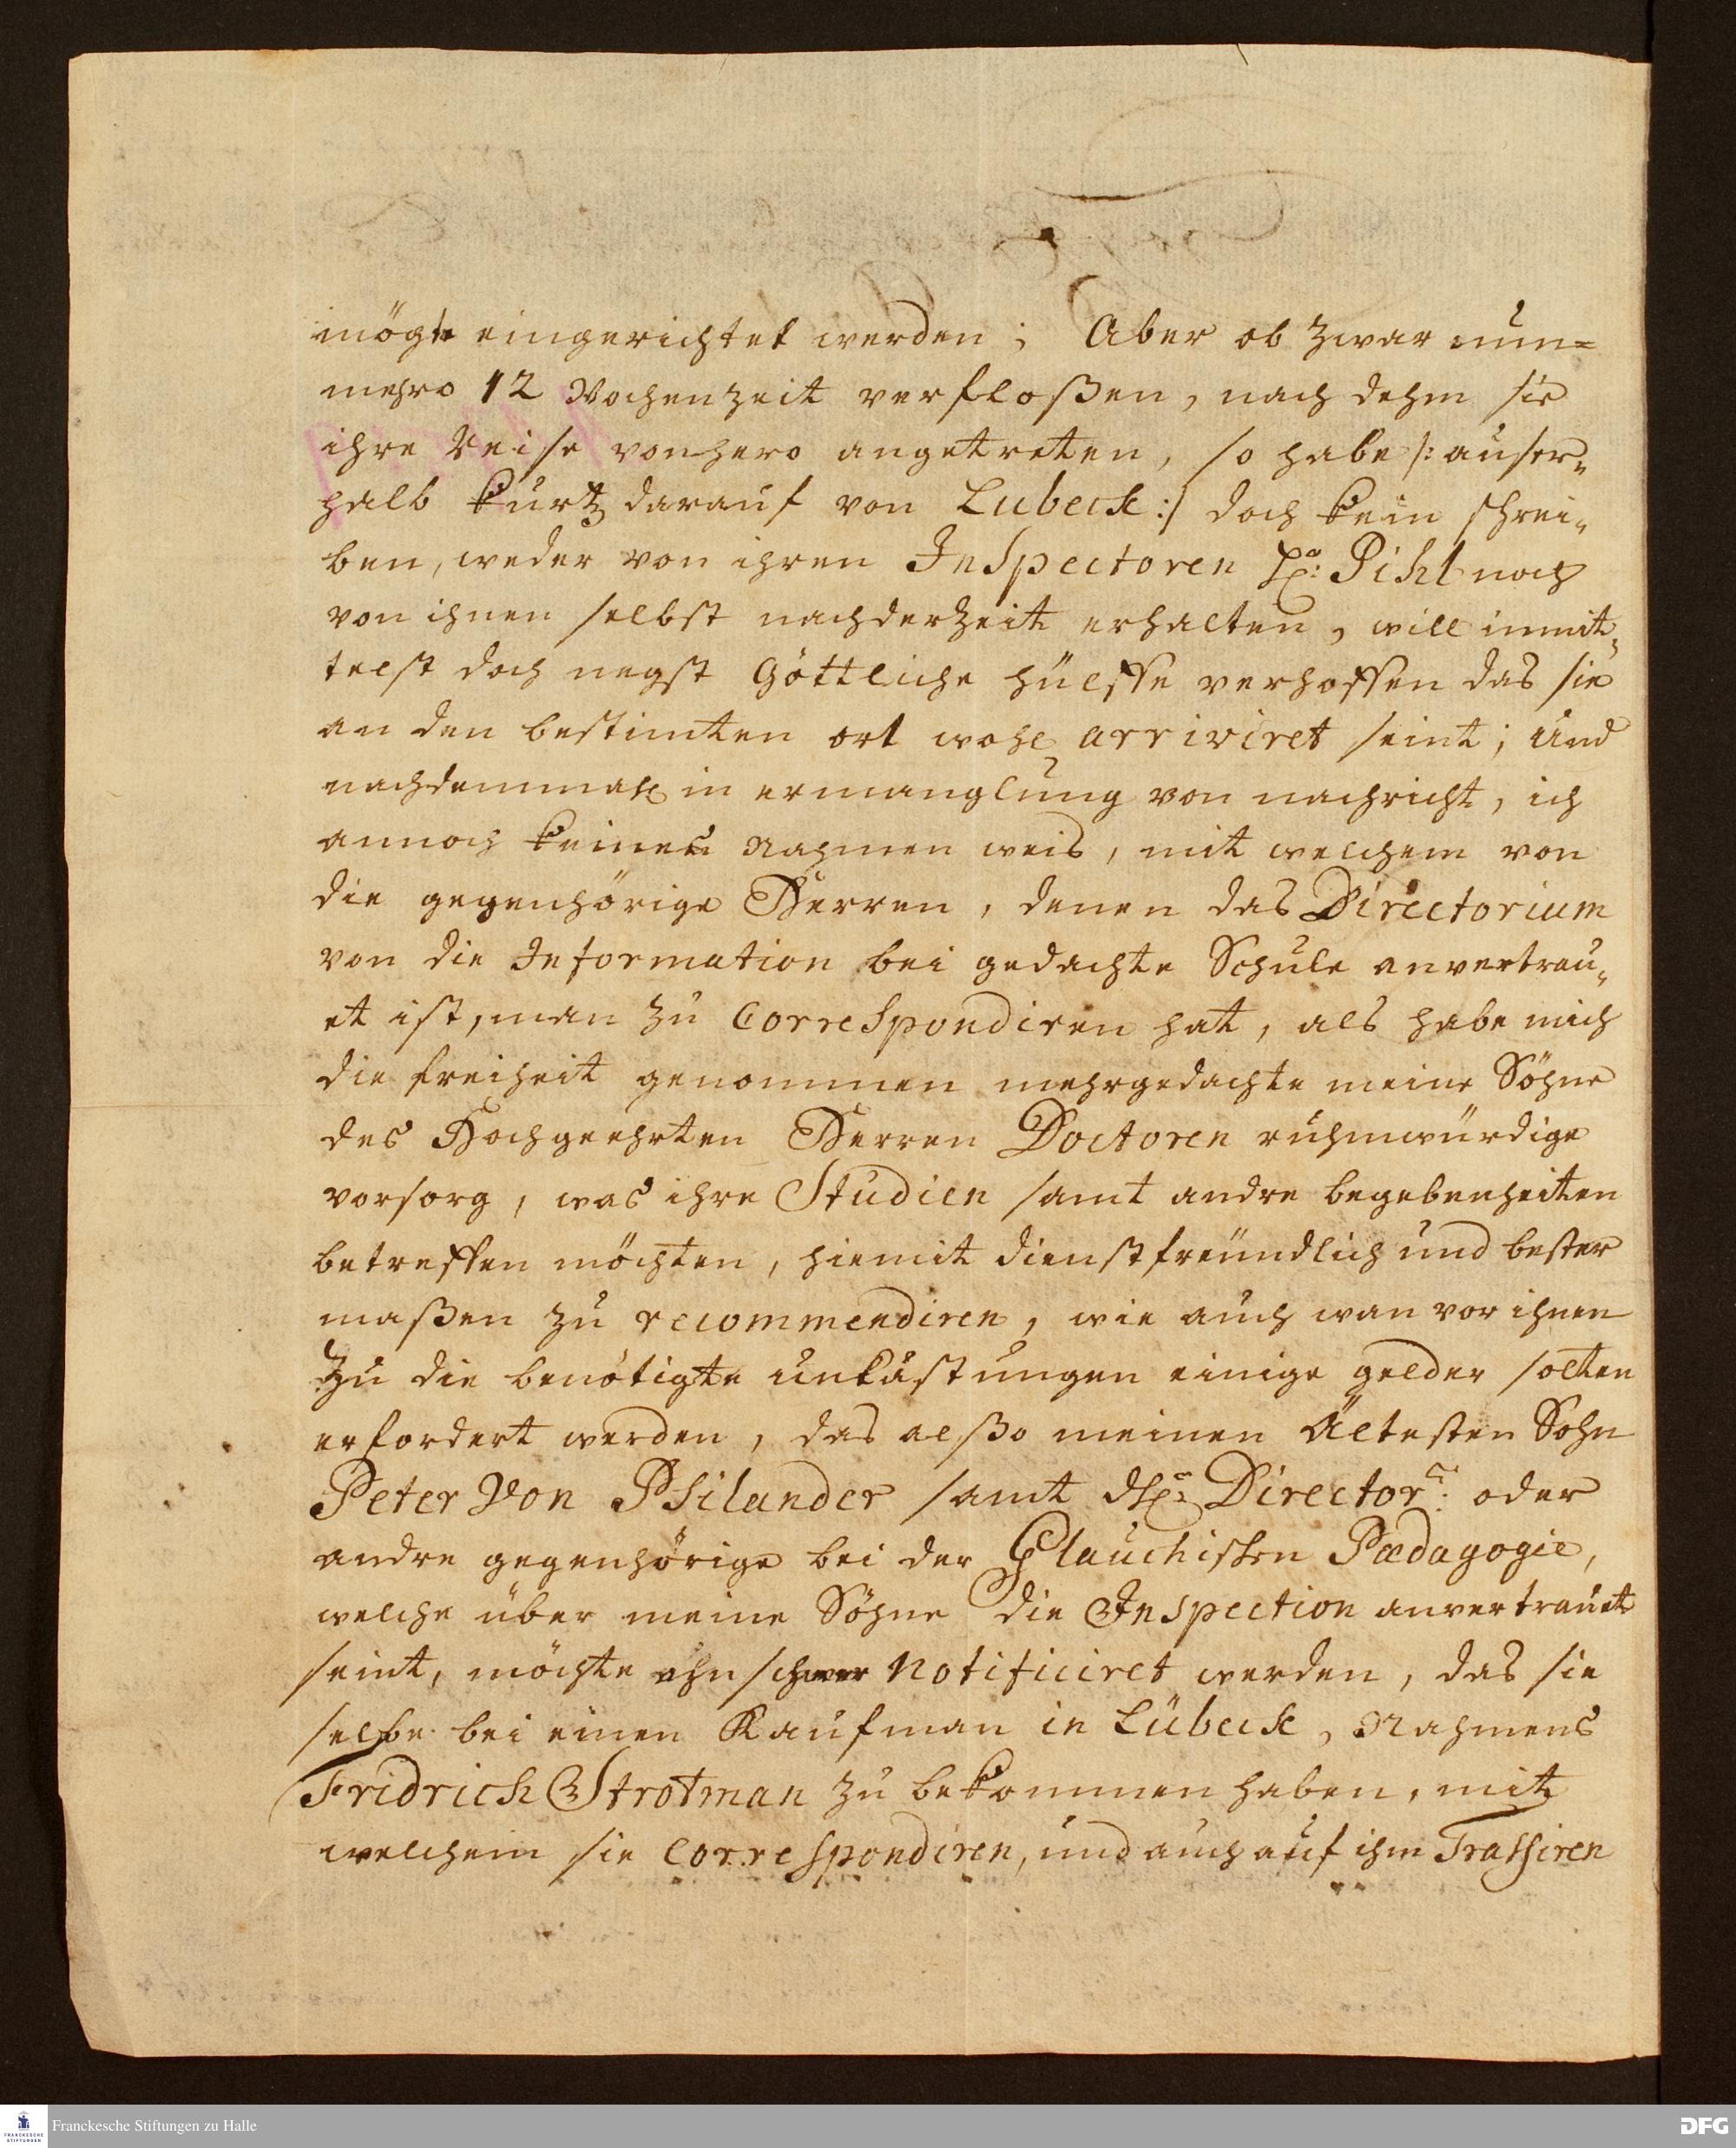 mögte eingerichtet werden; Aber ob zwar nun=
mehro 12 Wochenzeit verfloßen, nach dehm sie
ihre Reise vonhero angetreten, so habe /: auser-
halb kurtz darauf von Lubeck :/ doch kein schrei-
ben, weder von ihren Inspectoren Hr: Pihl noch
von ihnen selbst nachderzeit erhalten, will inmit-
telst doch negst Göttliche hülffe verhoffen das sie
an den bestimten ort wohl arriviret seint; Und
nachdemmahl in ermanglung von nachricht, ich
annoch keines Nahmen weis, mit welchem von
die gegenhörige Herren, denen das Directorium
von die Information bei gedachte Schule anvertrau-
et ist, man zu Correspondiren hat, als habe mich
die freiheit genommen mehrgedachte meine Söhne
des Hochgeehrten Herren Doctoren ruhmwürdige
vorsorg, was ihre Studien samt andre begebenheiten
betreffen möchten, hiemit dienstfreündlich und bester
maßen zu recommendiren, wie auch wan vor ihnen
zu die benötigte unkåstungen einige gelder solten
erfordert werden, das alßo meinen Ältesten Sohn
Peter Von Psilander samt dHr: Directorn: oder
andre gegenhörige bei der Glauchischen Pædagogie,
welche über meine Söhne die Inspection anvertrauet
seint, möchte ohnschwer notificiret werden, das sie
selbe bei einen Kaufman in Lübeck, Nahmens
Fridrich Strotman zu bekommen haben, mit
welchem sie correspondiren, und auch auf ihm Trassiren
Franckesche Stiftungen zu Halle
FRANCKESCHE STIFTUNGEN
DFG